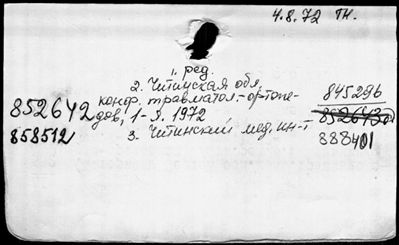 4.8.72 Гн.
1. ред.
2. Читинская обл.
конф. травматол.-ортопе-
дов, 1-я. 1972
3. Читинский мед. ин-т
852642
858512
845296
852643
888401